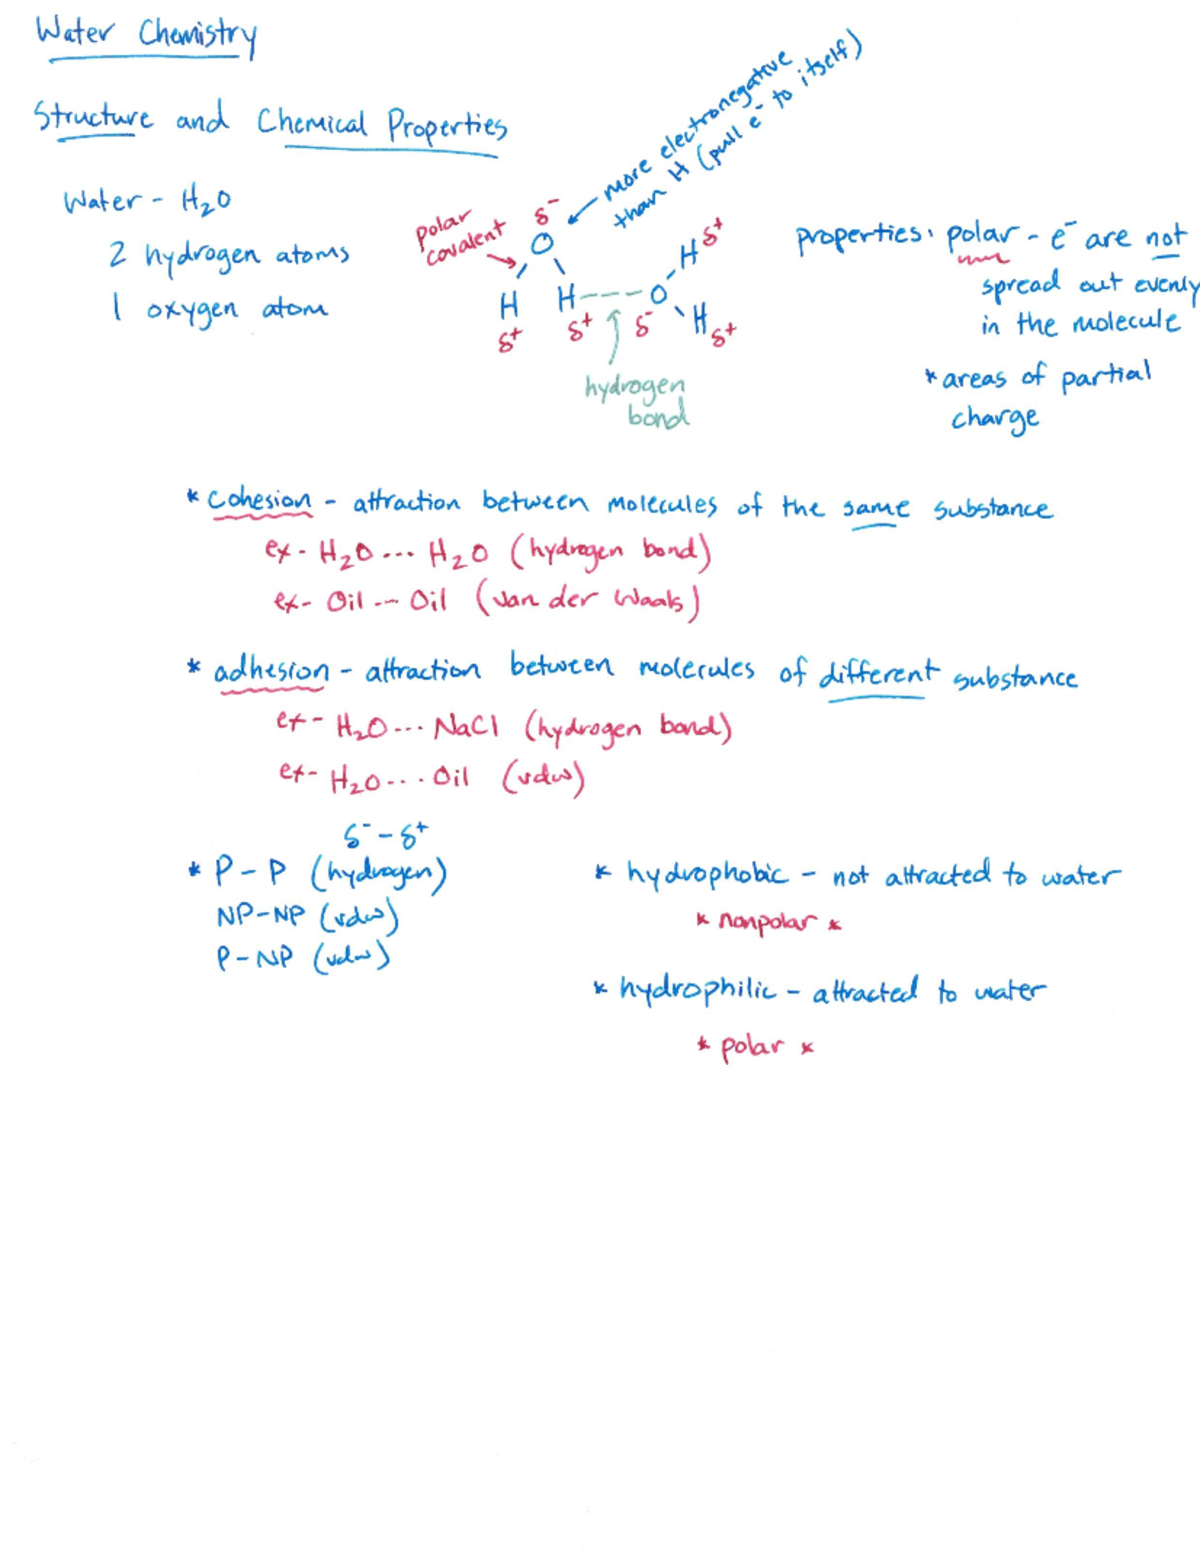 Water Chemistry
Structure and Chemical Properties
Water - H₂O
2 hydrogen atoms
1 oxygen atom
more electronegative
than H (pull e⁻ to itself)
polar
covalent
δ⁻
O
H H---O
δ⁺ δ⁺ δ⁻
H δ⁺
H δ⁺
hydrogen
bond
properties: polar - e⁻ are not
spread out evenly
in the molecule
* areas of partial
charge
* cohesion - attraction between molecules of the same substance
ex - H₂O ... H₂O (hydrogen bond)
ex- Oil --- Oil (van der Waals)
* adhesion - attraction between molecules of different substance
ex - H₂O ... NaCl (hydrogen bond)
ex- H₂O ... Oil (vdw)
δ⁻ - δ⁺
* P - P (hydrogen)
NP-NP (vdw)
P - NP (vdw)
* hydrophobic - not attracted to water
* nonpolar *
* hydrophilic - attracted to water
* polar *